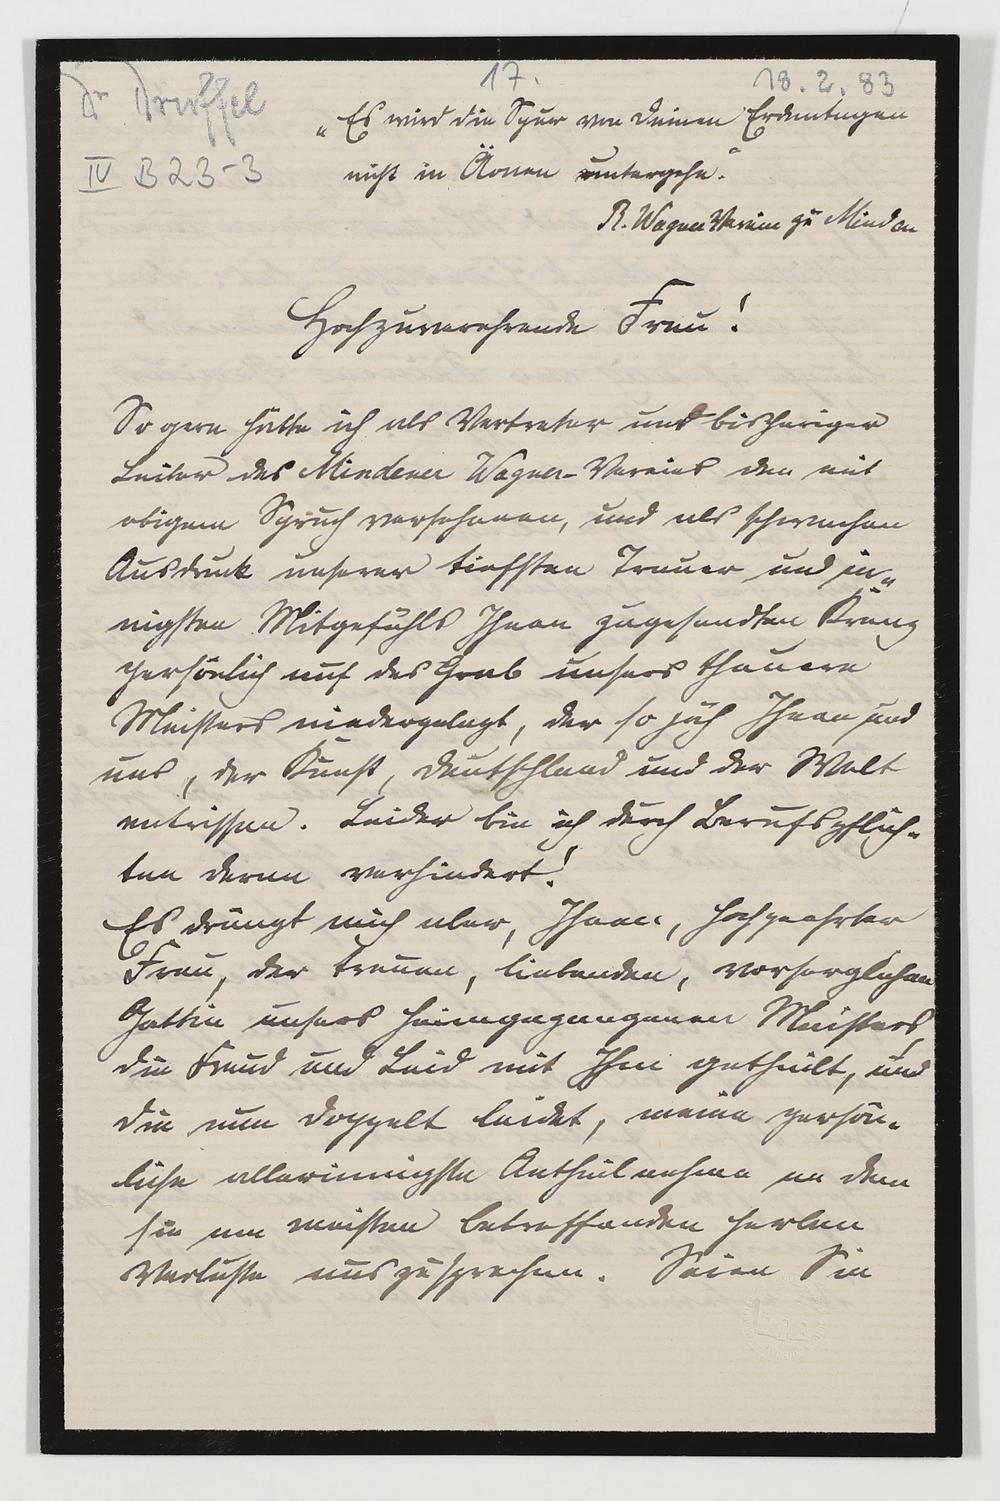 Dr Drüffel
17.
18.2.83
IV B 23-3
„Es wird die Spur von Deinen Erdentagen
nicht in Äonen untergehn."
R. Wagner Verein zu Minden
Hochzuverehrende Frau!
So gern hätte ich als Vertreter und bisheriger
Leiter des Mindener Wagner-Vereins den mit
obigem Spruch versehenen, und als schwachen
Ausdruck unserer tiefsten Trauer und in„
nigsten Mitgefühls Ihnen zugesandten Kranz
persönlich auf das Grab unsers theuern
Meisters niedergelegt, der so jäh Ihnen und
uns, der Kunst, Deutschland und der Welt
entrissen. Leider bin ich durch Berufspflich„
ten daran verhindert!
Es drängt mich aber, Ihnen, hochgeehrter
Frau, der treuen, liebenden, vorsorglichen
Gattin unsers heimgegangenen Meisters,
die Freud und Leid mit Ihm getheilt, und
die nun doppelt leidet, meine persön„
liche allerinnigste Antheilnahme an dem
sie am meisten betreffenden herben
Verluste auszusprechen. Seien Sie